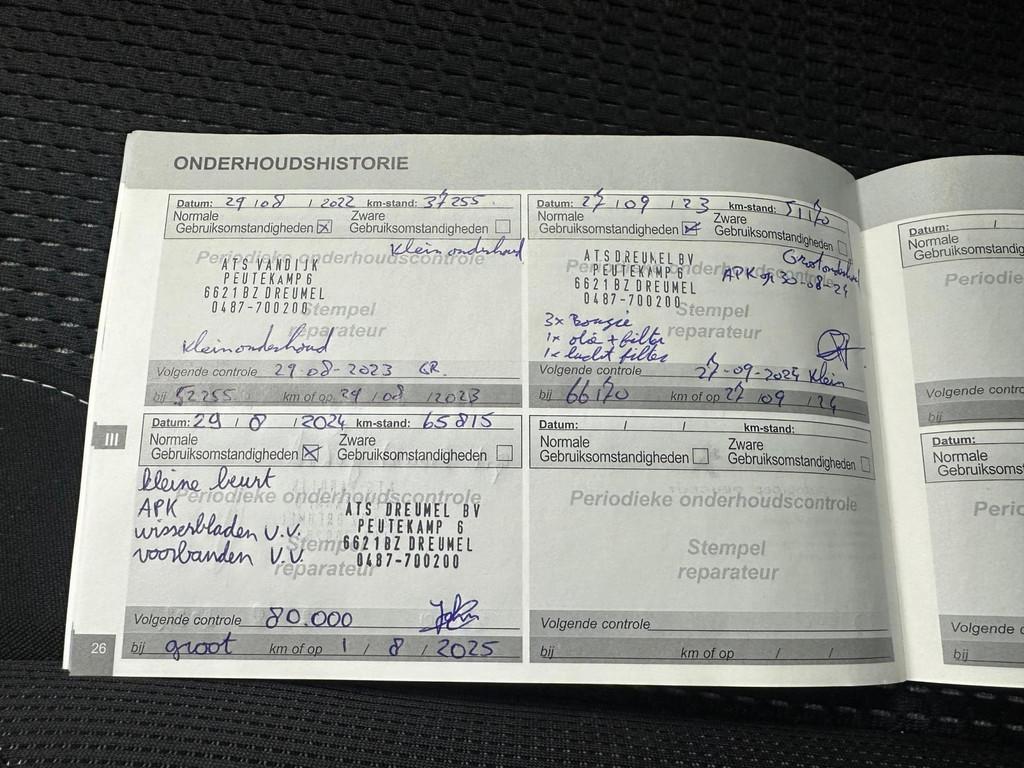 ONDERHOUDSHISTORIE
Datum: 29 / 08 / 2022 km-stand: 37255
Normale Zware
Gebruiksomstandigheden Gebruiksomstandigheden
Klein onderhoud
Periodieke onderhoudscontrole
ATS VANDIJK
PEUTEKAMP 6
6621BZ DREUMEL
0487-700200
Stempel
reparateur
Kleinonderhoud
Volgende controle 29-08-2023 GR.
bij 52255 km of op 29 / 08 / 2023
Datum: 27 / 09 / 23 km-stand: 51170
Normale Zware
Gebruiksomstandigheden Gebruiksomstandigheden
Grootonderhoud
Periodieke onderhoudscontrole
ATS DREUMEL BV
PEUTEKAMP 6
6621BZ DREUMEL
0487-700200
APK 30-08-24
Stempel
reparateur
3x Bougie
1x olie + filter
1x lucht filter
Volgende controle 27-09-2024 Klein
bij 66170 km of op 27 / 09 / 24
III
Datum: 29 / 8 / 2024 km-stand: 65815
Normale Zware
Gebruiksomstandigheden Gebruiksomstandigheden
kleine beurt
Periodieke onderhoudscontrole
APK
wisserbladen V.V.
voorbanden V.V.
ATS DREUMEL BV
PEUTEKAMP 6
6621BZ DREUMEL
0487-700200
Stempel
reparateur
Volgende controle 80.000
John
bij groot km of op 1 / 8 / 2025
Datum: / / km-stand:
Normale Zware
Gebruiksomstandigheden Gebruiksomstandigheden
Periodieke onderhoudscontrole
Stempel
reparateur
Volgende controle
bij km of op / /
26
Datum: /
Normale
Gebruiksomstandig
Periodie
Volgende contro
bij
Datum:
Normale
Gebruiksomst
Perio
Volgende c
bij